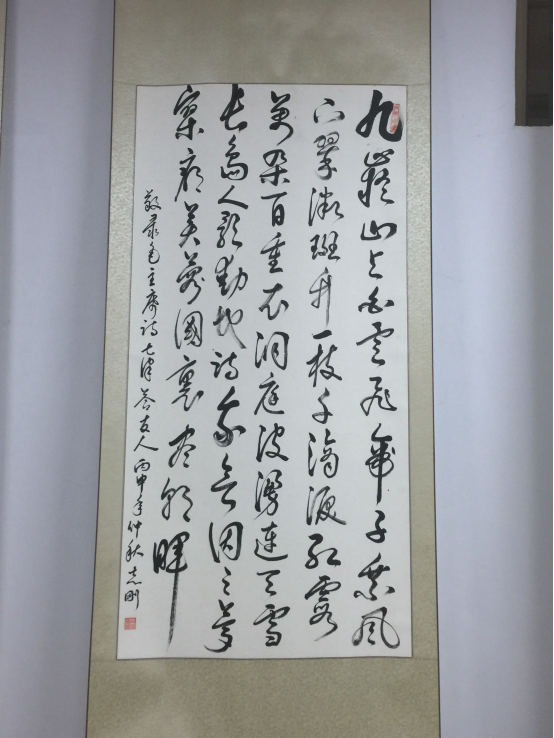 九嶷山上白雲飛帝子乘风
下翠微斑竹一枝千滴淚红霞
萬朵百重衣洞庭波湧連天雪
長島人歌動地詩我欲因之夢
寥廓芙蓉國裏盡朝暉
敬录毛主席诗七律答友人丙申年仲秋志刚